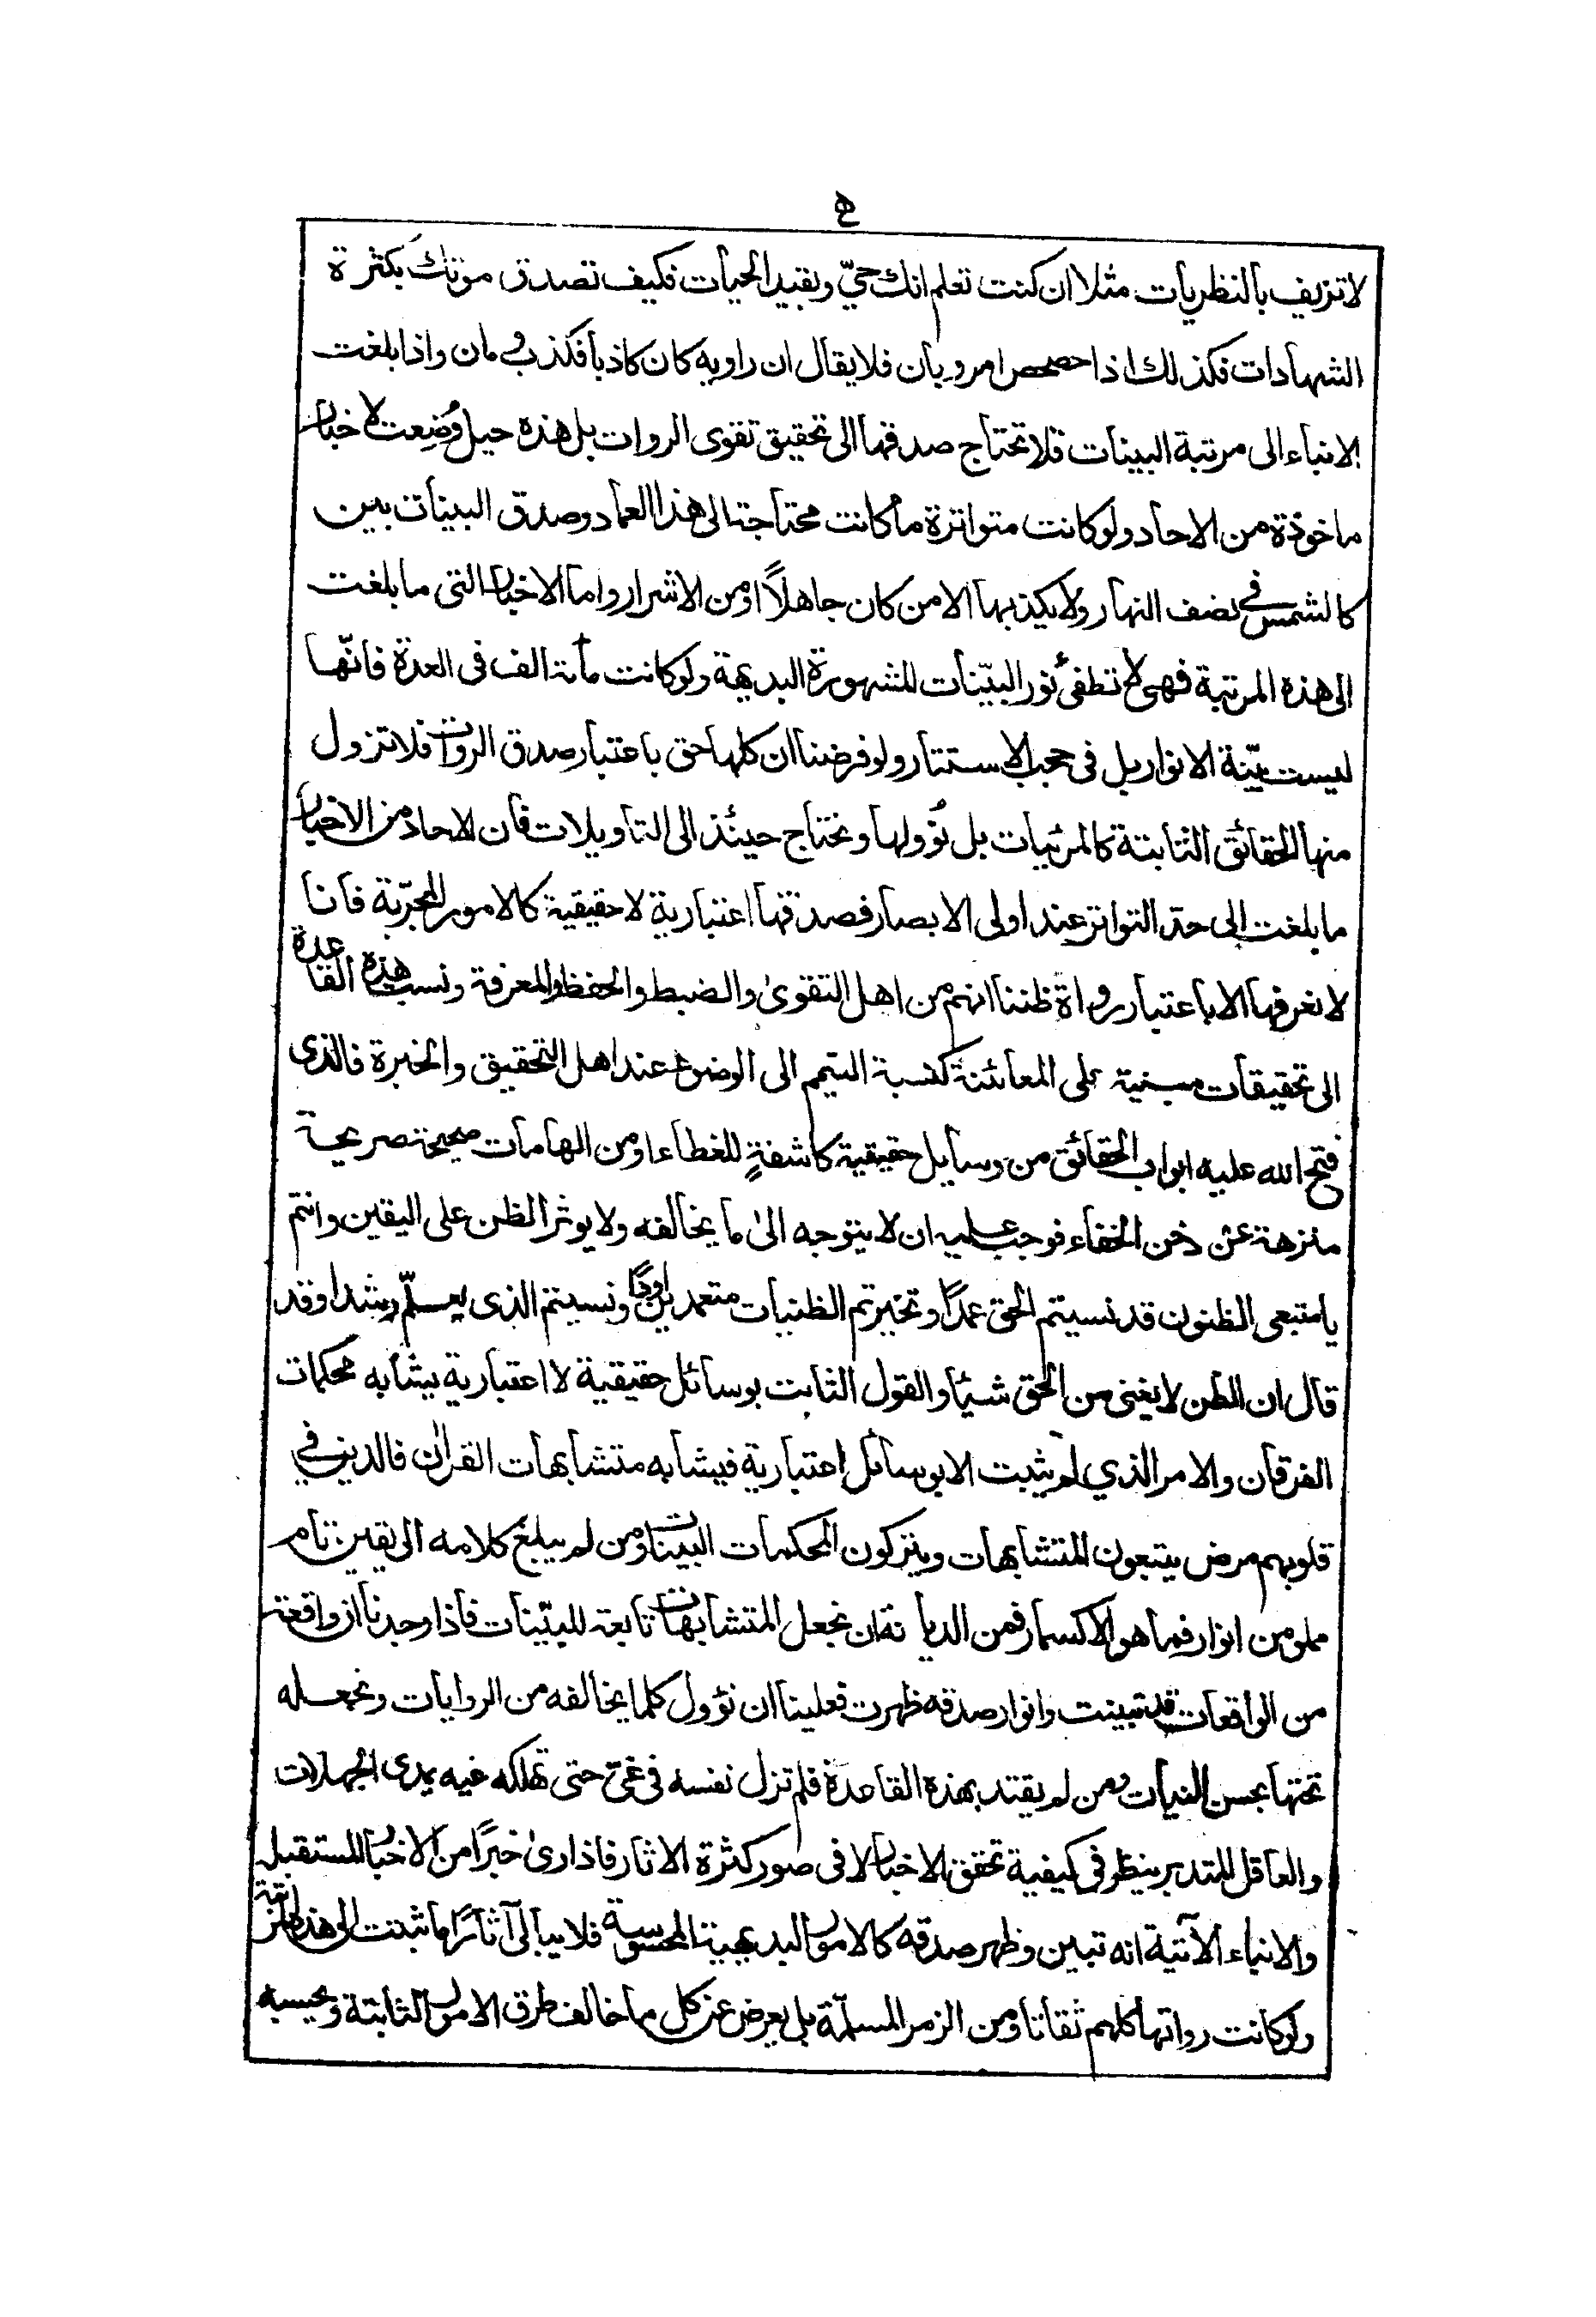 ۵
لا تزيف بالنظريات مثلا ان كنت تعلم انك حيّ وبقيد الحيات فكيف تصدق موتك بكثرة
الشهادات فكذلك اذا حصحص امر وبان فلا يقال ان راويه كان كاذبا فكذب ومان واذا بلغت
الانباء الى مرتبة البينات فلا تحتاج صدقها الى تحقيق تقوى الروات بل هذه حيل وُضِعت لاخبار
ماخوذة من الاحاد ولو كانت متواترة ما كانت محتاجة الى هذا العماد وصدق البينات بين
كالشمس في نصف النهار ولا يكذبها الا من كان جاهلًا او من الاشرار واما الاخبار التى ما بلغت
الى هذه المرتبة فهى لا تطفئ نور البيّنات المشهورة البديهة ولو كانت مأة الف فى العدة فانّها
ليست بيّنة الانوار بل فى حجب الاستتار ولو فرضنا ان كلها حق باعتبار صدق الروات فلا تزول
منها الحقائق الثابتة كالمرئيات بل نُوولها ونحتاج حينئذ الى التاويلات فان الاحاد من الاخبار
ما بلغت الى حدّ التواتر عند اولى الابصار فصدقها اعتبارية لا حقيقية كالامور المجرّبة فانا
لا نعرفها الا باعتبار رواة ظننا انهم من اهل التقوىٰ والضبط والحفظ والمعرفة ونسبت هذه القاعدة
الى تحقيقات مبنية على المعائنة كنسبة التيمم الى الوضوء عند اهل التحقيق والخبرة فالذى
فتح الله عليه ابواب الحقائق من وسايل حقيقية كاشفةٍ للغطاء او من الهامات صحيحة صريحة
منزهة عن دخن الخفاء فوجب عليه ان لا يتوجه الىٰ ما يخالفه ولا يوثر الظن على اليقين وانتم
يا متبعى الظنون قد نسيتم الحق عمدًا وتخيرتم الظنيات متعمدين ونسيتم الذى يعلّم رشدا وقد
قال ان الظن لا يغنى من الحق شيئا والقول الثابت بوسائل حقيقية لا اعتبارية يشابه محكمات
الفرقان والامر الذي لم يثبت الا بوسائل اعتبارية فيشابه متشابهات القراٰن فالذين في
قلوبهم مرض يتبعون المتشابهات ويتركون المحكمات البينات ومن لم يبلغ كلامه الى يقين تام
مملو من انوار فما هو الا كسمار فمن الديانة ان نجعل المتشابهات تابعة للبيّنات فاذا وجدنا ان واقعة
من الواقعات قد تبينت وانوار صدقه ظهرت فعلينا ان نؤول كلما يخالفه من الروايات ونجعله
تحتها بحسن النيات ومن لم يقتد بهذه القاعدة فلم تزل نفسه فى غىّ حتى تهلكه غيه بمدى الجهلات
والعاقل المتدبر ينظر في كيفية تحقق الاخبار لا فى صور كثرة الاثار فاذا رىٰ خبرًا من الاخبار المستقبلة
والانباء الآتية انه تبين وظهر صدقه كالامور البديهية المحسوسة فلا يبالى آثارًا ما ثبتت الى هذه المرتبة
ولو كانت رواتها كلهم ثقاتا ومن الزمر المسلمة بل يعرض عن كل ما خالف طرق الامور الثابتة ويحسبه